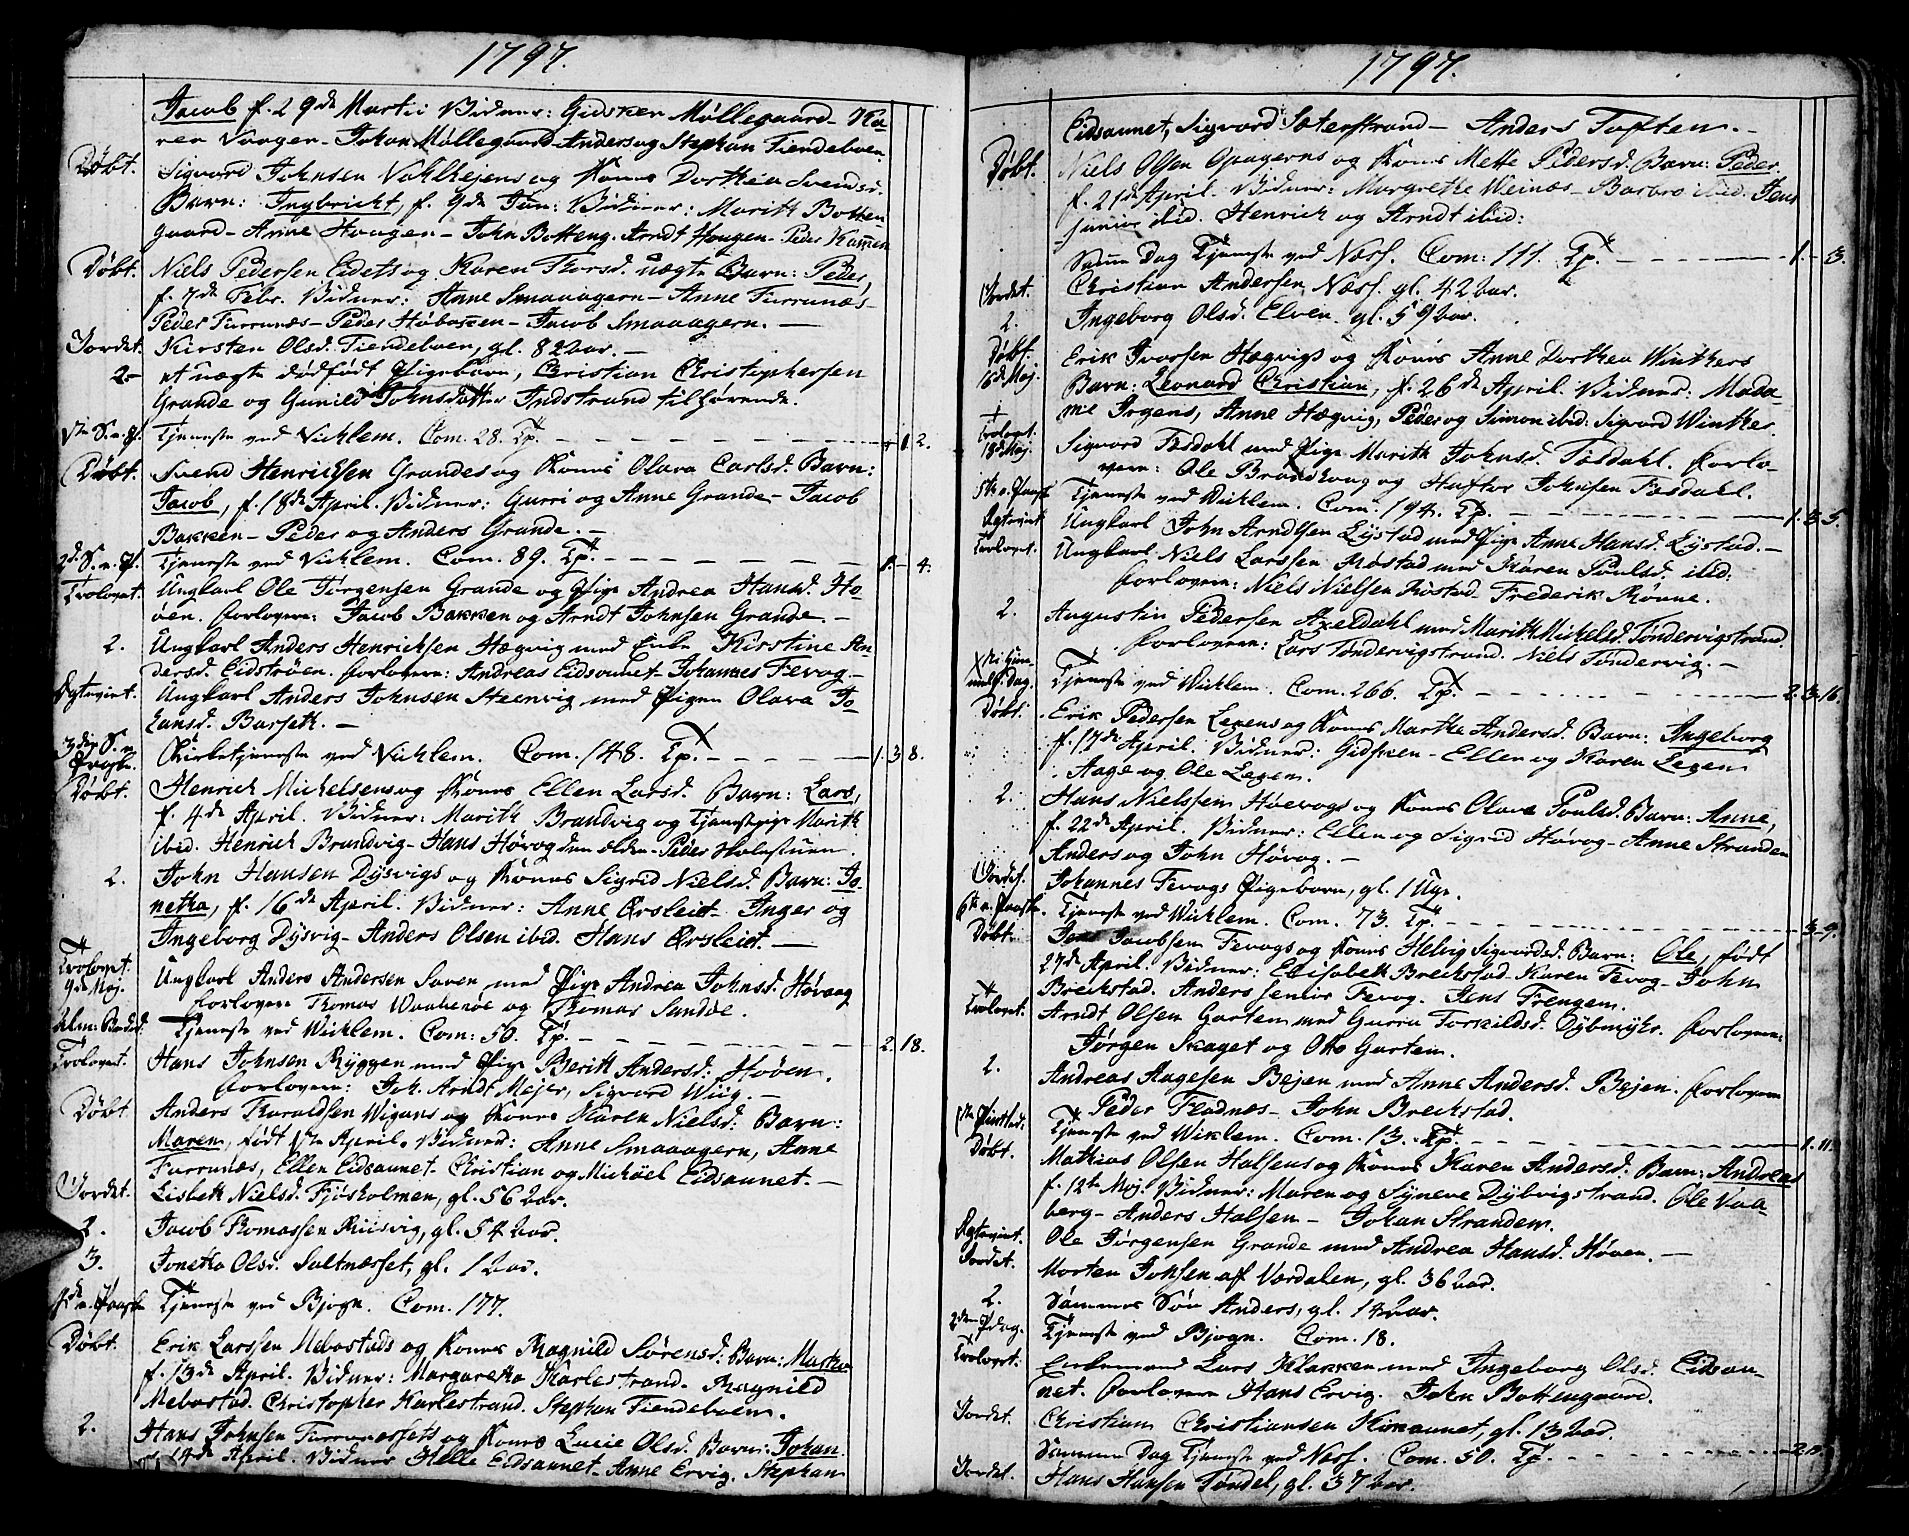 1797.
Jacob f. 29de Martii Vidner: Gidsken Møllegaard - Ka-
ren Vongen - Johan Møllegaard - Anders og Stephan Tiendeboen.
Døbt. Sigvard Johnsen Vahlhejens og Kones Dorthea Svendsd.
Barn: Ingbricht, f. 9de Jan: Vidner: Marith Botten-
gaard - Anne Hougen - John Botteng. Arndt Hougen - Peder
Døbt. Niels Pedersen Eidets og Karen Thorsd. uægte Barn: Peder,
f. 7de Febr. Vidner: Anne Smaaagern - Anne Furrunæs -
Peder Furrunæs - Peder Høbakken - Jacob Smaaagern. -
Jordet. Kirsten Olsd. Tiendeboen, gl. 82 aar. -
2. et uægte dødfødt Pigebarn, Christian Christophersen
Grande og Gunild Johnsdatter Indstrand tilhørende.
1ste S. e. P. Tjeneste ved Vicklem. Com. 28. Tp. - 1. 2.
Døbt. Svend Henrichsen Grandes og Kones Olava Carlsd. Barn:
Jacob, f. 18de April. Vidner: Gurri og Anne Grande - Jacob
Bakken - Peder og Anders Grande. -
2d. S. e. P. Tjeneste ved Vicklem. Com. 89. Tp. - 1. - 4.
Trolovet. Ungkarl Ole Jørgensen Grande og Pige Andrea Hansd. Ho-
øen. Forlovere: Jacob Bakken og Arndt Johnsen Grande. -
2. Ungkarl Anders Henrichsen Hægvig med Enke Kirstine An-
dersd. Eidstrøen. Forlovere: Andreas Eidsaunet - Johannes Fevog. -
Ægteviet. Ungkarl Anders Johnsen Steenvig med Pigen Olava Jo-
hansd. Barseth. -
3die S. e. Paaske. Kirketjeneste ved Vicklem. Com. 148. Tp. - 1. 3. 8.
Døbt. Henrich Michelsens og Kones Ellen Larsd. Barn: Lars,
f. 4de April. Vidner: Marith Brandvig og Tjenestepige Marith
ibid. Henrich Brandvig - Hans Høvog den ældre - Peder Holestuen.
2. John Hansen Dysvigs og Kones Sigrid Nielsd. Barn: Jo-
netha, f. 16de April. Vidner: Anne Ørsleiet. Inger og
Ingeborg Dysvig - Anders Olsen ibid. Hans Ørsleiet. -
Trolovet. 9de Maj. Ungkarl Anders Andersen Saven med Pige Andrea Johnsd. Høvaag
Forlovere Thomas og Thomas Sandøe.
Alm: Bededag Tjeneste ved Wicklem. Com: 50. Tp. - 2. 18.
Trolovet. Hans Johnsen Ryggen med Pige Berith Andersd: Høøen.
Forlovere: Joh. Arndt Mejer, Sigvard Wiig. -
Døbt Anders Tharaldsen Wigans og Kones Karen Nielsd: Barn:
Maren, født 1ste April. Vidner: Anne Smaaagern, Anne
Furrunæs, Ellen Eidsaunet. Christian og Michael Eidsaunet. -
Jordet. Lisbeth Nielsd. Fjøsholmen, gl. 56 Aar.
2. Jacob Thomassen Riisvig, gl. 54 Aar.
3. Jonetha Olsd. Saltnæsset, gl. 1 Aar.
4de e. Paaske Tjeneste ved Bjogn. Com. 177.
Døbt. Erik Larssen Mebostads og Kones Ragnild Sørensd: Barn: Martha
f. 13de April. Vidner: Margaretha Karlestrand. Ragnild
Mebostad. Christopher Karlestrand. Stephan Tiendeboen.
2. Hans Johnsen Furrunessets og Kones Lucie Olsd. Barn: Johan
f. 14de April. Vidner Helle Eidsaunet - Anne Ervig. Stephan
1797.
Eidsaunet, Sigvard Sæterstrand - Anders Toften. -
Døbt. Niels Olsen Opagerns og Kones Mette Pedersd. Barn: Peder
f. 21de April. Vidner: Margrethe Weinæs - Barbro ibid. Jens
junior ibid. Henrich og Arndt ibid:
Samme Dag Tjeneste ved Næss. Com: 111. Tp. - 1. - 3.
Jordet. Christian Andersen Næss. gl. 42 Aar.
2. Ingeborg Olsd. Elven. gl. 59 Aar.
Døbt. 16d. Maj. Erik Ivarsen Hægvigs og Kones Anne Dorthea Winthers
Barn: Leonard Christian, f. 26de April. Vidner: Mada-
me Irgens, Anne Hægvig, Peder og Simon ibid: Sigvard Winther.
Trolovet. 18d. Maj. Sigvard Fosdahl med Pige Marith Johnsd. Fosdahl. Forlo-
vere: Ole Brandhoug og Hafftor Johnsen Fosdahl.
5te e. Paaske Tjeneste ved Wicklem. Com. 194. Tp. - 1. 3. 5.
Ægteviet Ungkarl John Arndtsen Lystad med Pige Anne Hansd. Lystad. -
Trolovet. Ungkarl Niels Larssen Røstad med Karen Poulsd. ibid:
Forlovere: Niels Nielsen Røstad - Frederik Rønne.
2. Augustin Pedersen Axeldahl med Marith Michelsd. Tøndervigstrand.
Forlovere: Lars Tøndervigstrand. Niels Tøndervig. -
Kristi Himmelf. Dag. Tjeneste ved Wicklem. Com. 266. Tp. - 2. 3. 16.
Døbt. Erik Pedersen Legens og Kones Marthe Andersd. Barn: Ingeborg
f. 17de April. Vidner: Gidsken - Ellen og Karen Legen
Aage og Ole Legen.
2. Hans Nielssen Høevogs og Kones Olave Poulsd. Barn: Anne,
f. 22de April. Vidner: Ellen og Sigrid Høvog - Anne Stranden
Anders og John Høvog. -
Jordet. Johannes Fevogs Pigebarn, gl. 1 Uge.
6te e. Paaske. Tjeneste ved Wicklem. Com. 73. Tp. - 3. 9.
Døbt. Jens Jacobsen Fevogs og Kones Helvig Sigvardsd. Barn: Ole, født
27de April. Vidner: Elisabeth Breckstad - Karen Fevog - John
Breckstad. Anders senior Fevog. Jens Trengen.
Trolovet. Arndt Olsen Garten med Gurru Torkildsd. Dybmyhr. Forlovere:
Jørgen Skaget og Otto Garten.
2. Andreas Aagesen Bejen med Anne Andersd. Bejen. Forlovere
Peder Fladnæs - John Breckstad.
1ste Pintsed. Tjeneste ved Wiklem. Com. 13. Tp. - 1. 11.
Døbt. Mathias Olsen Halsens og Kones Karen Andersd. Barn: Andreas
f. 12te Maj. Vidner: Maren og Synneve Dybvigstrand. Ole Vaa-
berg - Anders Halsen - Johan Stranden.
Ægteviet. Ole Jørgensen Grande med Andrea Hansd. Høven. -
Jordet. Morten Johsen af Værdalen, gl. 36 Aar.
2. Sammes Søn Anders, gl. 14 Aar.
2den P.dag. Tjeneste ved Bjogn. Com. 18.
Trolovet. Enkemand Lars Klakken med Ingeborg Olsd. Eidsau-
net. Forlovere Hans Ervig. John Bottengaard.
Jordet. Christian Christiansen Kimaunet, gl. 13 Aar.
Samme Dag Tjeneste ved Næss. Com. 50. Tp. -
Jordet. Hans Hansen Tøndel, gl. 37 Aar.